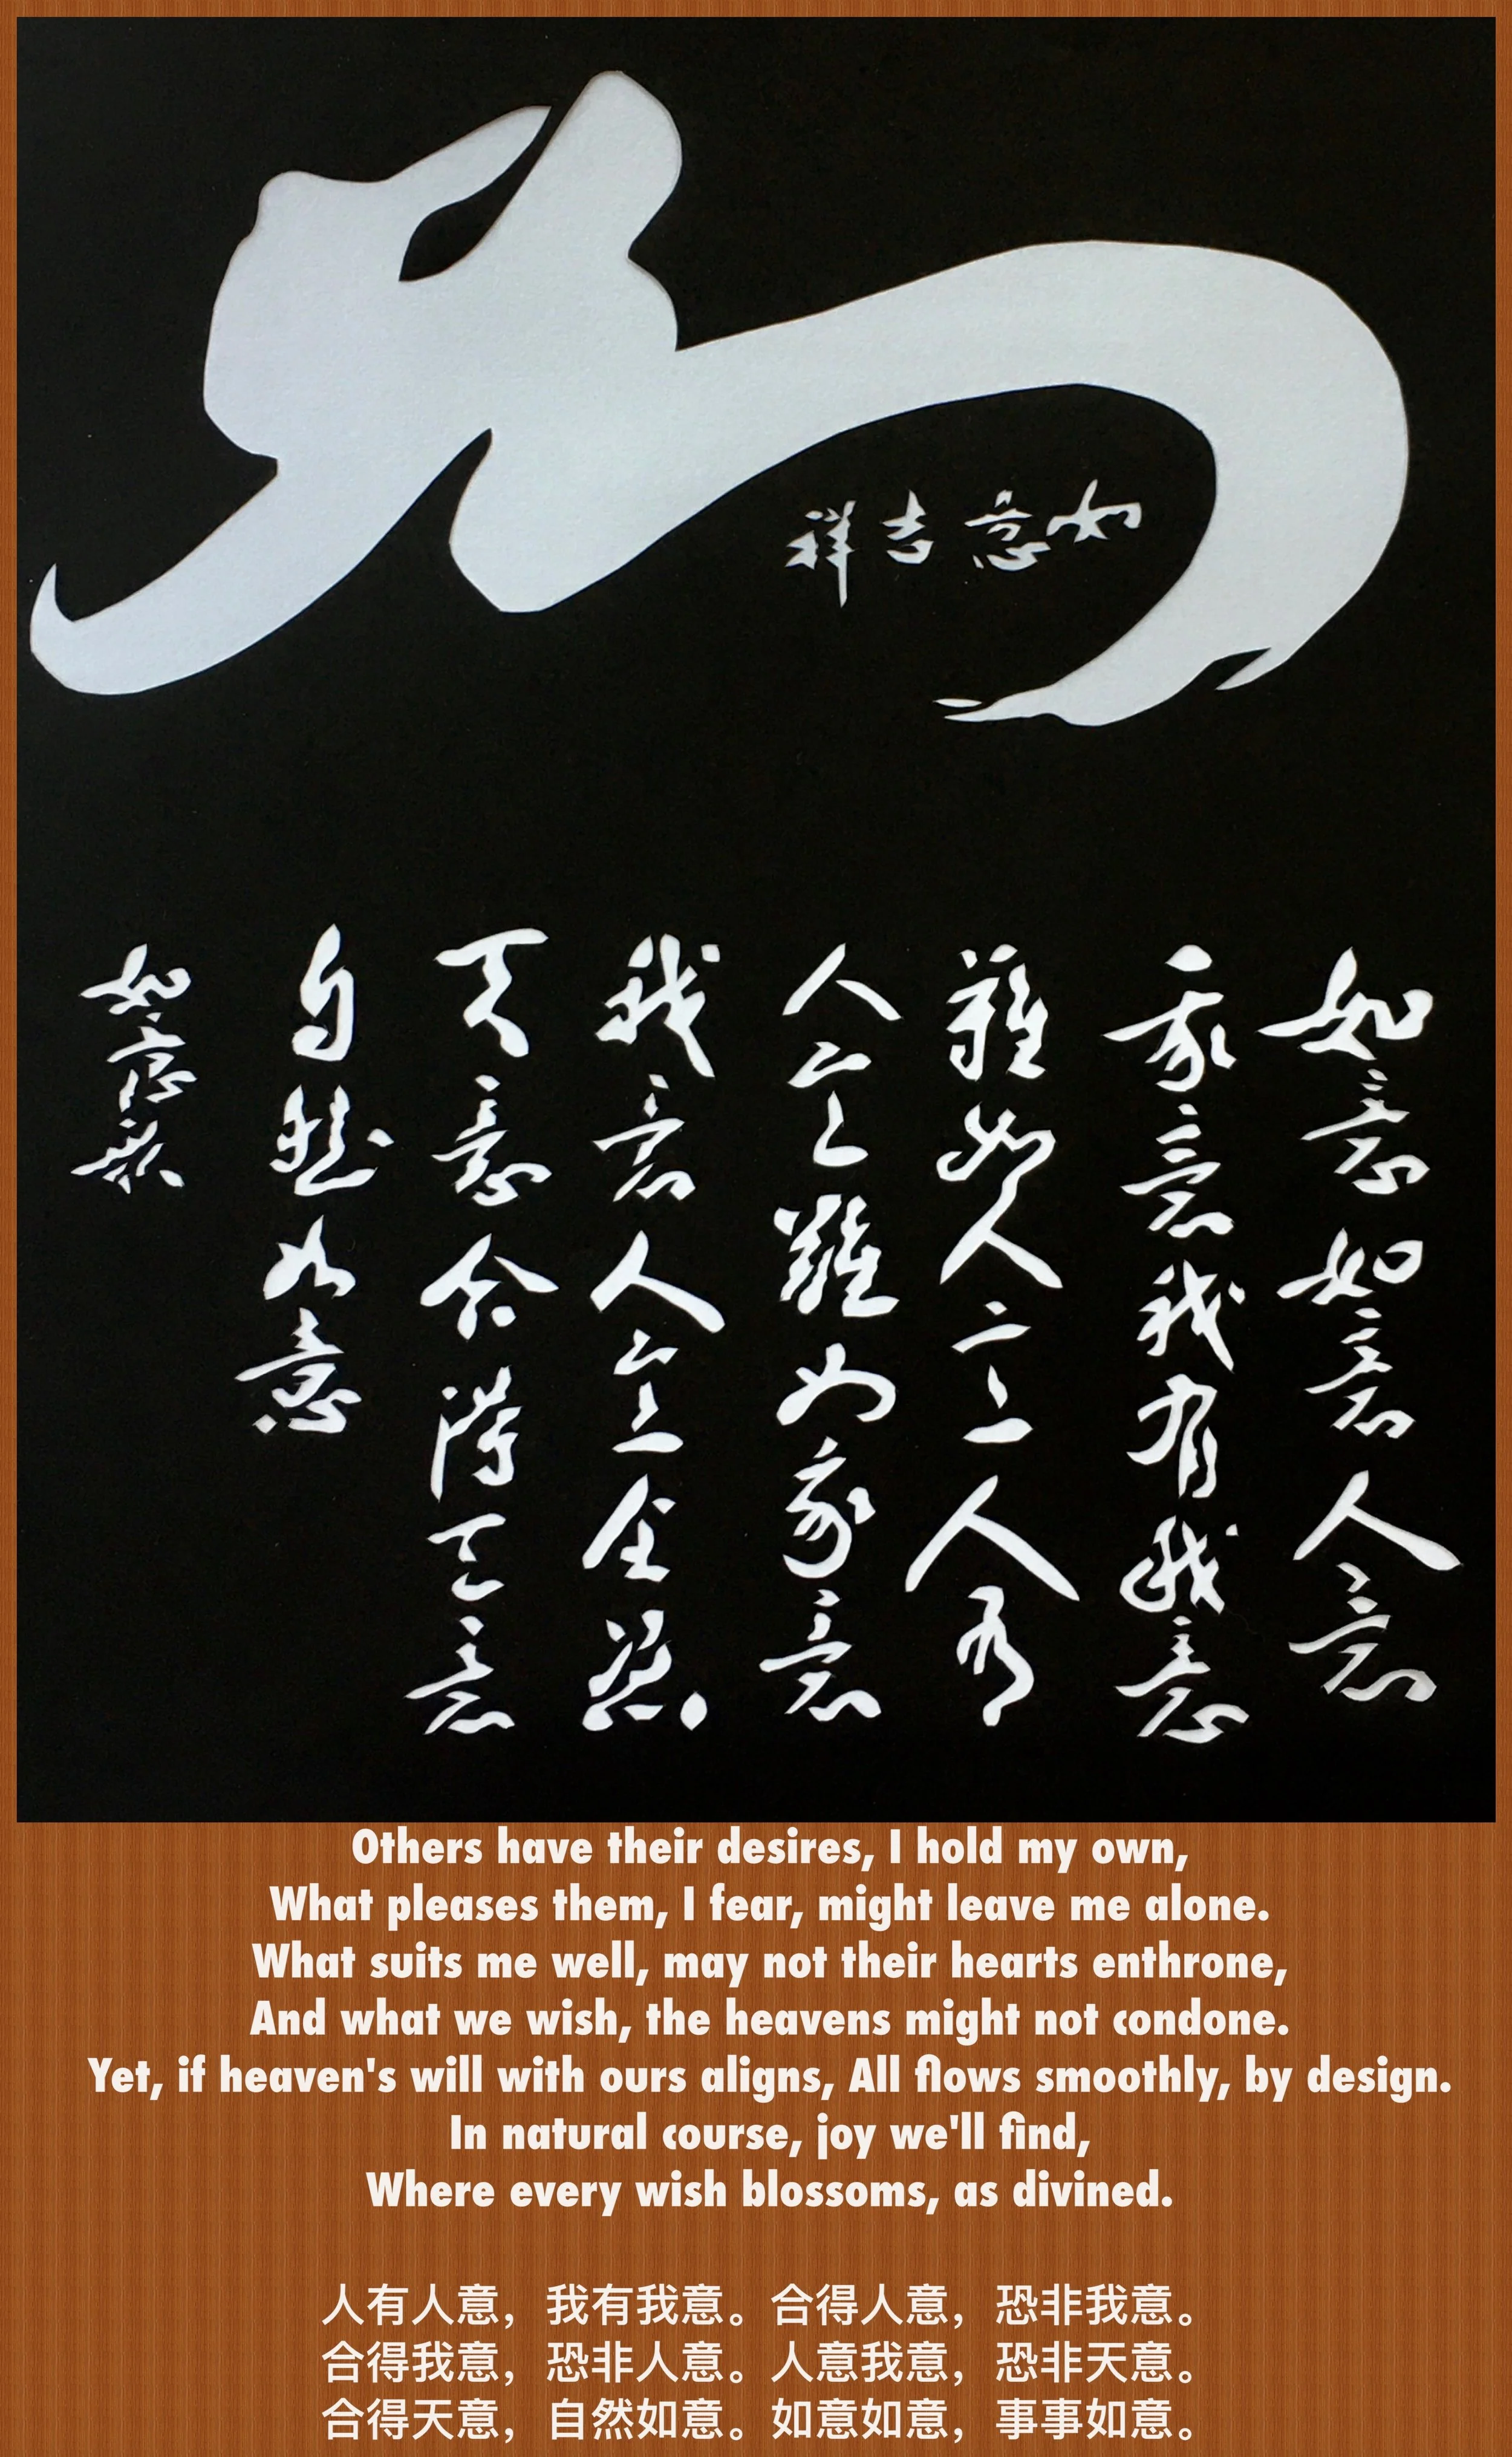 如意吉祥
如意如意人意
我意我有我意
難如人意人有
人意難如我意
我意人意全憑
天意合得天意
自然如意
如意
Others have their desires, I hold my own,
What pleases them, I fear, might leave me alone.
What suits me well, may not their hearts enthrone,
And what we wish, the heavens might not condone.
Yet, if heaven's will with ours aligns, All flows smoothly, by design.
In natural course, joy we'll find,
Where every wish blossoms, as divined.
人有人意，我有我意。合得人意，恐非我意。
合得我意，恐非人意。人意我意，恐非天意。
合得天意，自然如意。如意如意，事事如意。